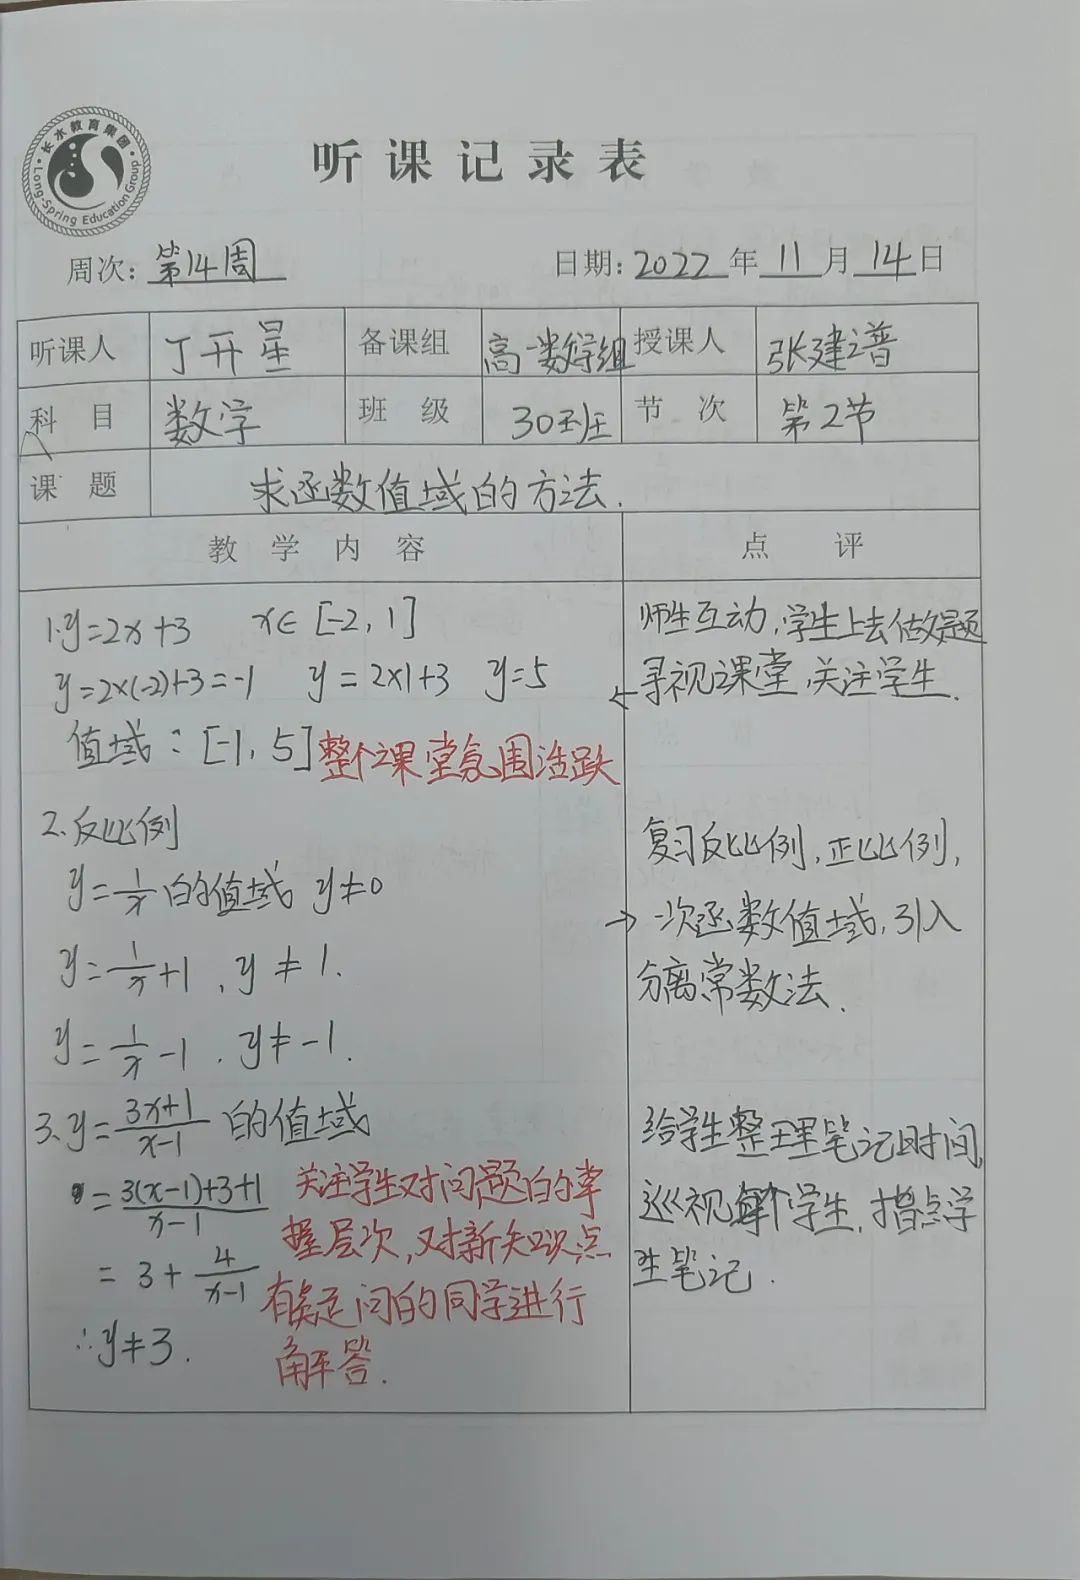 长水教育集团
Long-Spring Education Group
听课记录表
周次：第14周 日期：2022年11月14日
听课人 丁开星 备课组 高一数学组 授课人 张建谱
科目 数学 班级 30班 节次 第2节
课题 求函数值域的方法.
教学内容 点评
1.y=2x+3 x∈[-2,1]
y=2×(-2)+3=-1 y=2×1+3 y=5
值域：[-1,5] 整个课堂氛围活跃
师生互动,学生上去做题
←寻视课堂,关注学生.
2.反比例
y=1/x的值域 y≠0
y=1/x+1,y≠1.
y=1/x-1.y≠-1.
复习反比例,正比例,
→一次函数值域,引入
分离常数法.
3.y=(3x+1)/(x-1)的值域
=(3(x-1)+3+1)/(x-1)
=3+4/(x-1)
∴y≠3.
关注学生对问题的掌
握层次,对新知识点
有疑问的同学进行
解答.
给学生整理笔记时间,
巡视每个学生,指点学
生笔记.